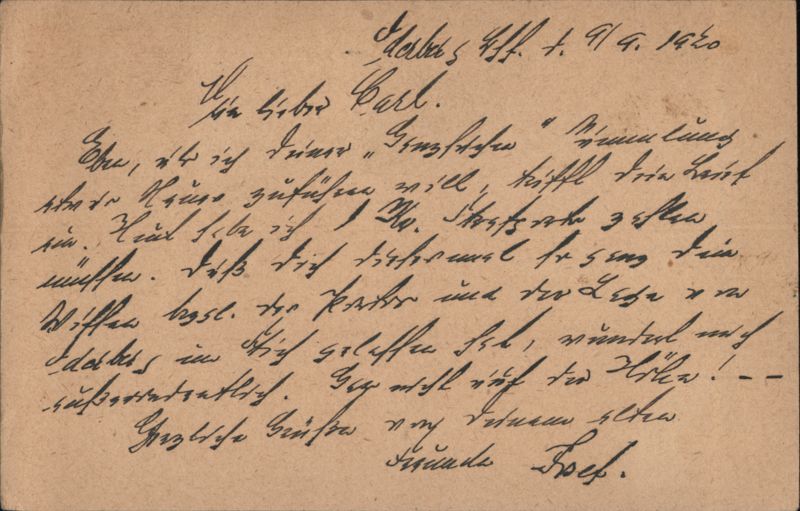 9/9. 1920
Mein lieber Carl.
Eben, als ich Deiner „Ganzsachen" Sammlung
etwas Neues zuführen will, trifft Dein Brief
ein. Nun habe ich 1 Kr. Strafporto zahlen
müssen. Daß Dich diesesmal so ganz Dein
Wissen bezgl. des Portos und der Lage von
im Stich gelassen hat, wundert mich
außerordentlich. Gar nicht auf der Höhe! — —
Herzliche Grüße von Deinem alten
Freunde Josef.